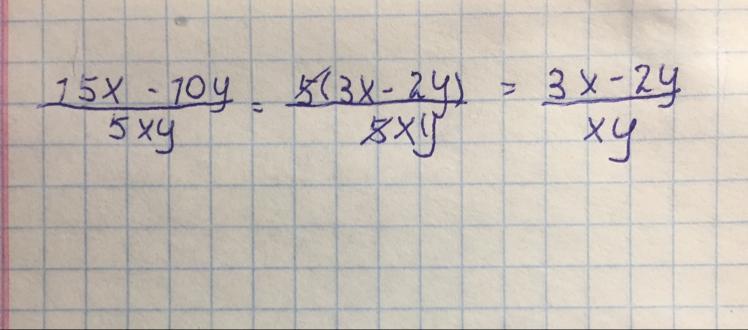 (15x - 10y)/(5xy) = (5(3x - 2y))/(5xy) = (3x - 2y)/(xy)